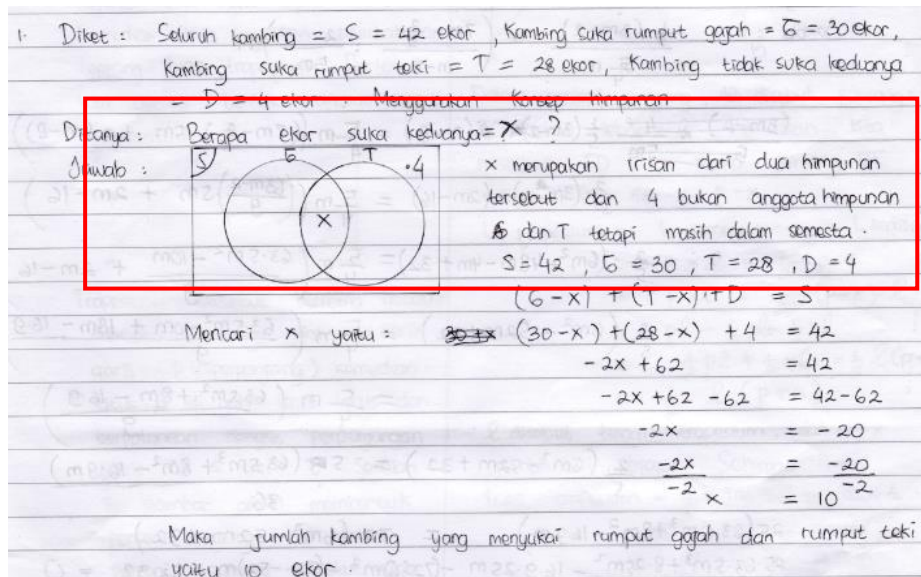 1. Diket : Seluruh kambing = S = 42 ekor , Kambing suka rumput gajah = G = 30 ekor,
Kambing suka rumput teki = T = 28 ekor, Kambing tidak suka keduanya
= D = 4 ekor . Menggunakan konsep himpunan
Ditanya : Berapa ekor suka keduanya = x ?
Jawab :
S G T .4
x
x merupakan irisan dari dua himpunan
tersebut dan 4 bukan anggota himpunan
G dan T tetapi masih dalam semesta .
S = 42 , G = 30 , T = 28 , D = 4
(G - x) + (T - x) + D = S
Mencari x yaitu : (30 - x) + (28 - x) + 4 = 42
-2x + 62 = 42
-2x + 62 - 62 = 42 - 62
-2x = -20
-2x = -20
-2 -2
x = 10
Maka jumlah kambing yang menyukai rumput gajah dan rumput teki
yaitu 10 ekor .